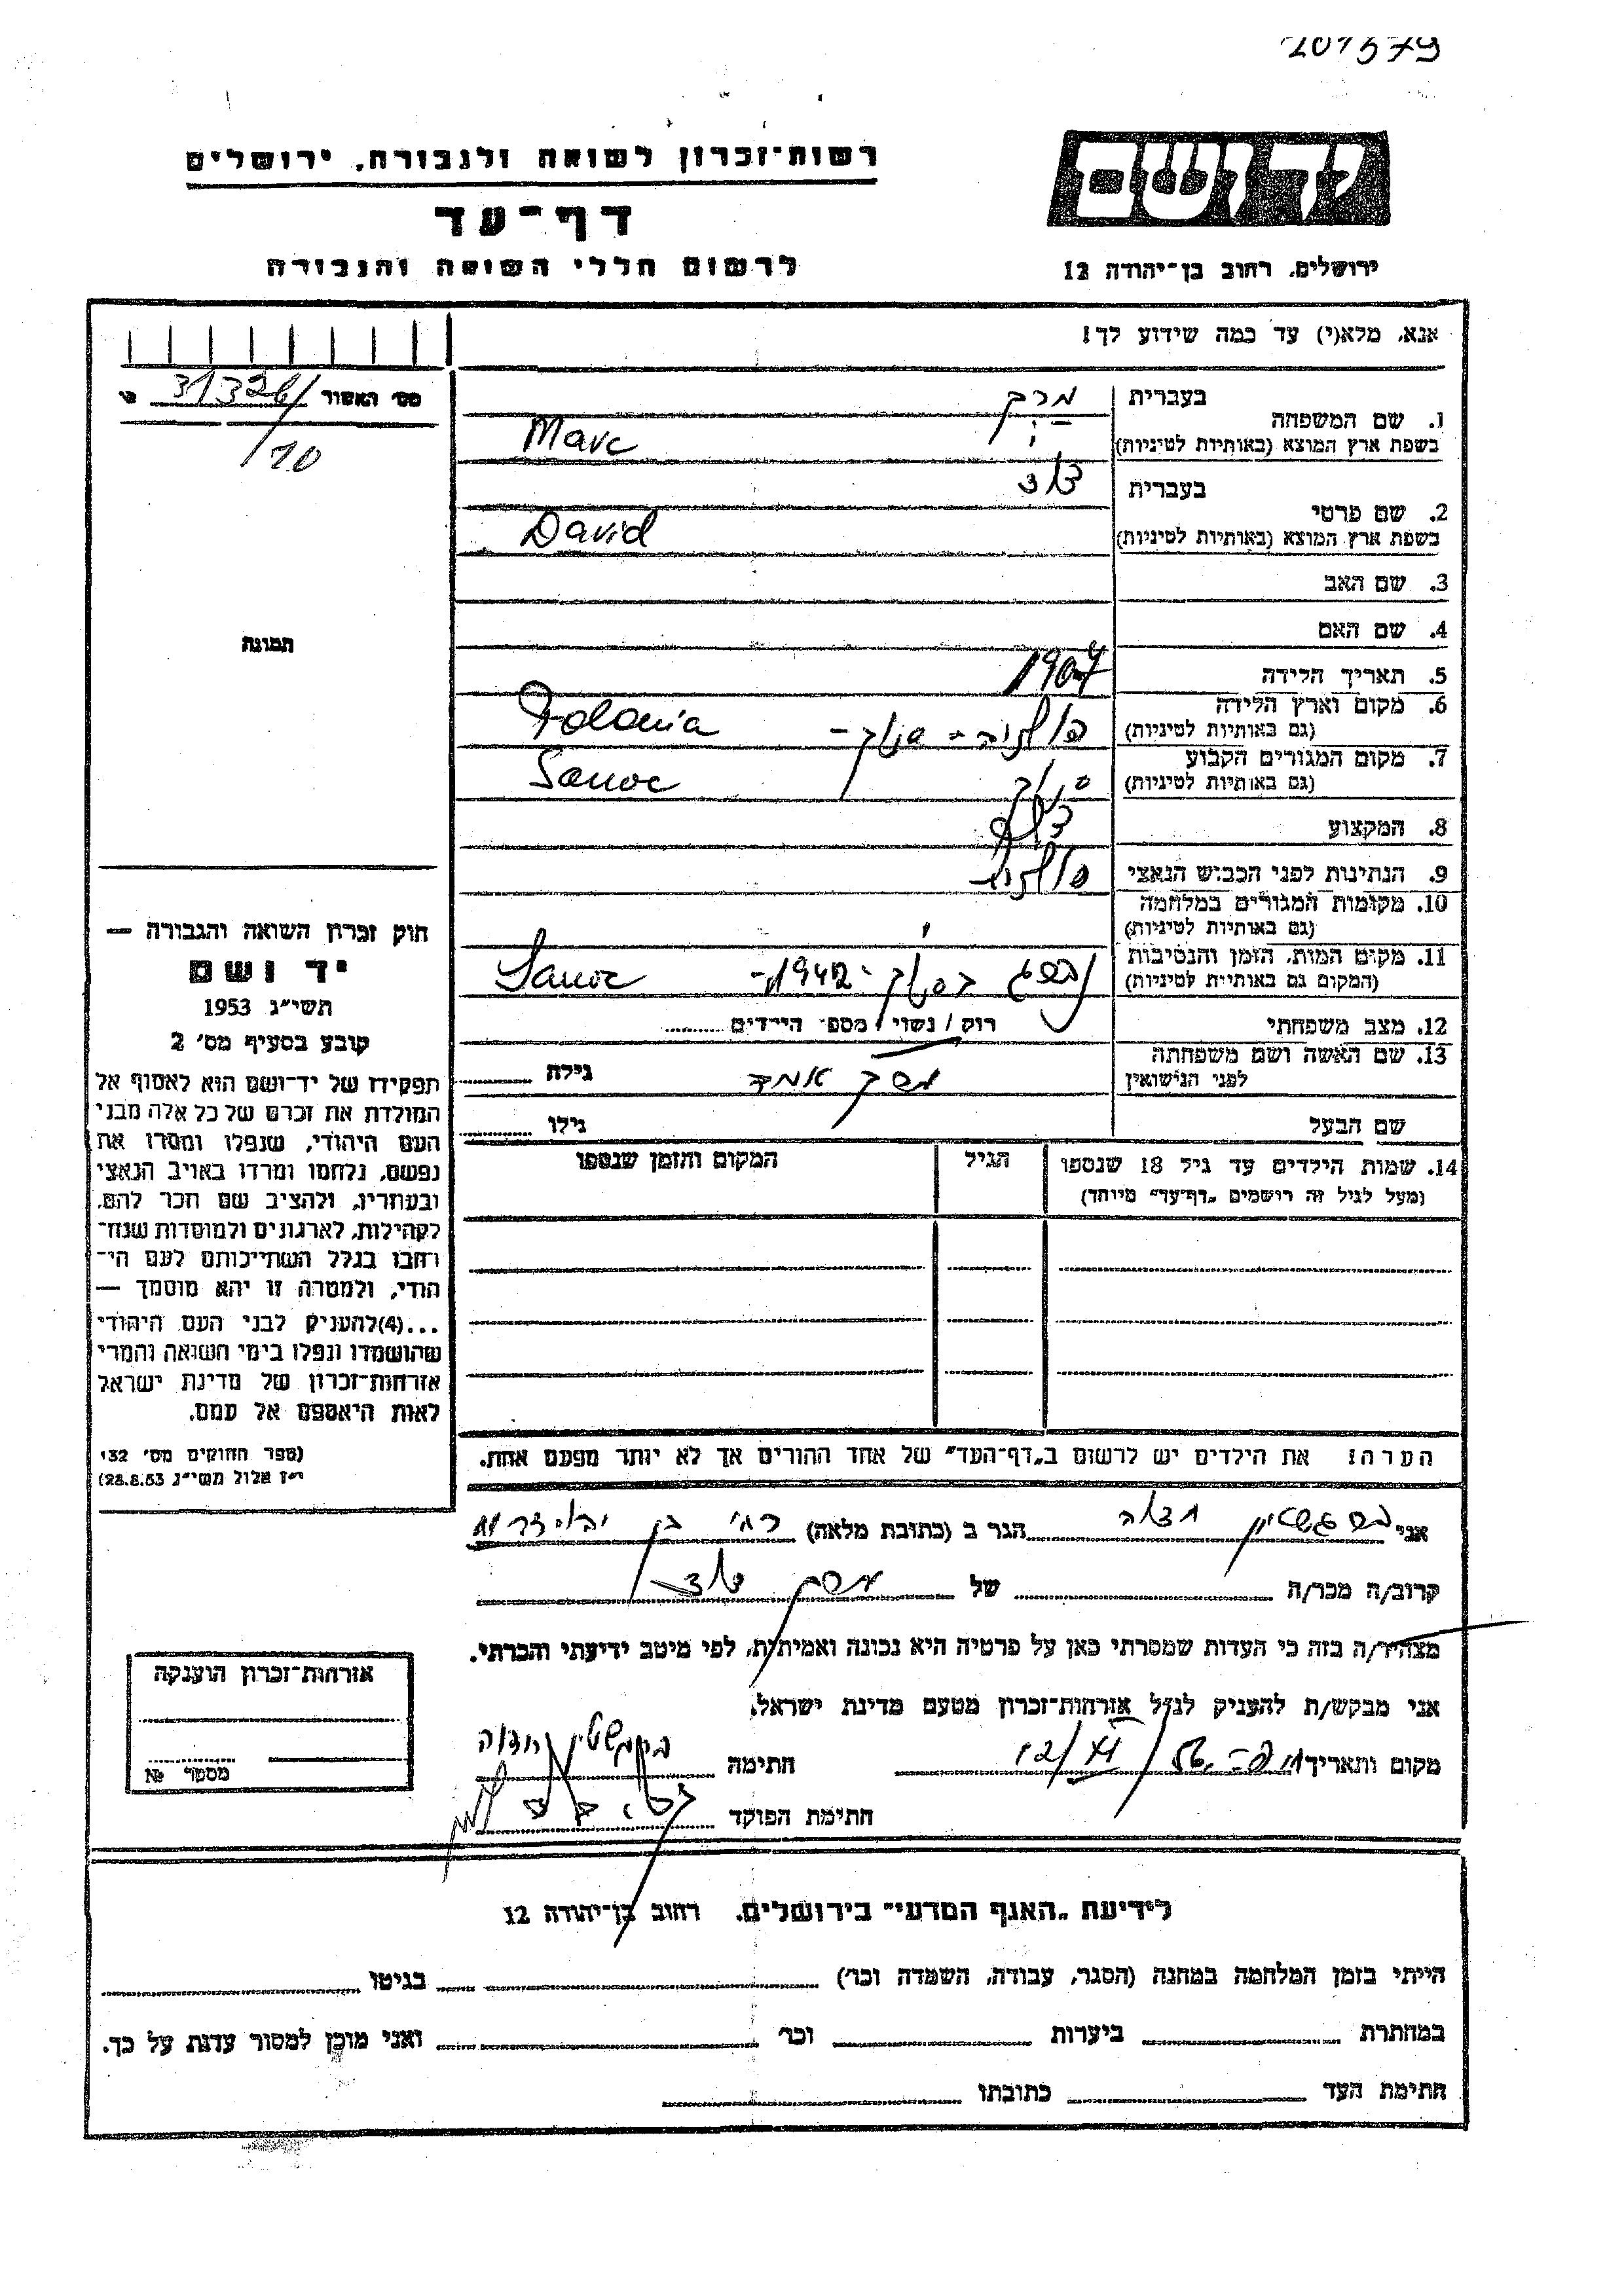 201579
רשות־זכרון לשואה ולגבורה, ירושלים
דף־עד
לרשום חללי השואה והגבורה
יד ושם
ירושלים, רחוב בן־יהודה 12
אנא, מלא(י) עד כמה שידוע לך!
מס' האשור 31326/
/10
תמונה
1. שם המשפחה
בעברית מרק
בשפת ארץ המוצא (באותיות לטיניות) Marc
2. שם פרטי
בעברית דוד
בשפת ארץ המוצא (באותיות לטיניות) David
3. שם האב
4. שם האם
5. תאריך הלידה 1907
6. מקום וארץ הלידה
(גם באותיות לטיניות) פולניה - סנוק - Polonia
7. מקום המגורים הקבוע
(גם באותיות לטיניות) סנוק Sanoc
8. המקצוע
9. הנתינות לפני הכבוש הנאצי פולנית
10. מקומות המגורים במלחמה
(גם באותיות לטיניות)
11. מקום המות, הזמן והנסיבות
(המקום גם באותיות לטיניות) בסנוק - 1942 - Sanoc
12. מצב משפחתי רוק / נשוי / מספ' הילדים
13. שם האשה ושם משפחתה
לפני הנישואין גילה
שם הבעל גילו
14. שמות הילדים עד גיל 18 שנספו
(מעל לגיל זה רושמים „דף־עד" מיוחד)
הגיל
המקום והזמן שנספו
הערה! את הילדים יש לרשום ב„דף־העד" של אחד ההורים אך לא יותר מפעם אחת.
חוק זכרון השואה והגבורה —
יד ושם
תשי"ג 1953
קובע בסעיף מס' 2
תפקידו של יד־ושם הוא לאסוף אל
המולדת את זכרם של כל אלה מבני
העם היהודי, שנפלו ומסרו את
נפשם, נלחמו ומרדו באויב הנאצי
ובעוזריו, ולהציב שם וזכר להם,
לקהילות, לארגונים ולמוסדות שנח־
רבו בגלל השתייכותם לעם הי־
הודי, ולמטרה זו יהא מוסמך —
...(4)להעניק לבני העם היהודי
שהושמדו ונפלו בימי השואה והמרי
אזרחות־זכרון של מדינת ישראל
לאות היאספם אל עמם.
(ספר החוקים מס' 132
י"ז אלול תשי"ג 28.8.53)
אני הגר ב (כתובת מלאה)
קרוב/ה מכר/ה של מרק דוד
מצהיר/ה בזה כי העדות שמסרתי כאן על פרטיה היא נכונה ואמיתית, לפי מיטב ידיעתי והכרתי.
אני מבקש/ת להעניק לנ"ל אזרחות־זכרון מטעם מדינת ישראל.
מקום ותאריך 12/ חתימה
חתימת הפוקד
אזרחות־זכרון הוענקה
מספר №
לידיעת „האגף המדעי" בירושלים, רחוב בן־יהודה 12
הייתי בזמן המלחמה במחנה (הסגר, עבודה, השמדה וכו') בגיטו
במחתרת ביערות וכו' ואני מוכן למסור עדות על כך.
חתימת העד כתובתו